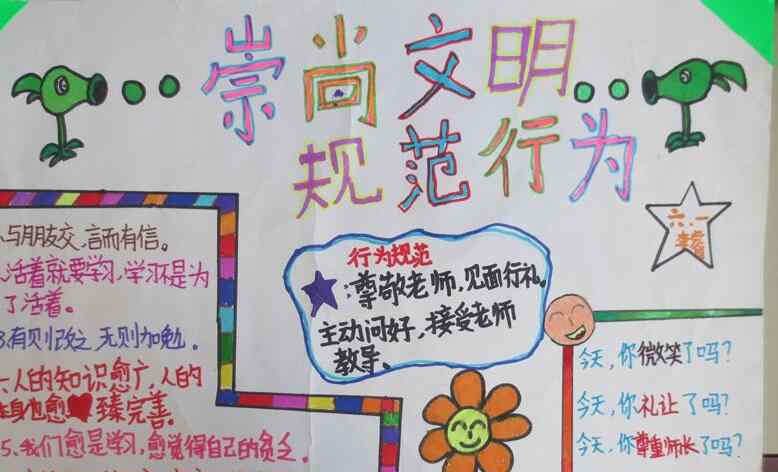 崇尚文明
规范行为
六.一
、与朋友交，言而有信。
、活着就要学习，学习不是为
了活着。
3.有则改之，无则加勉。
、人的知识愈广，人的
本身也愈臻完善。
5、我们愈是学习，愈觉得自己的贫乏。
行为规范
：尊敬老师，见面行礼。
主动问好，接受老师
教导。
今天，你微笑了吗？
今天，你礼让了吗？
今天，你尊重师长了吗？